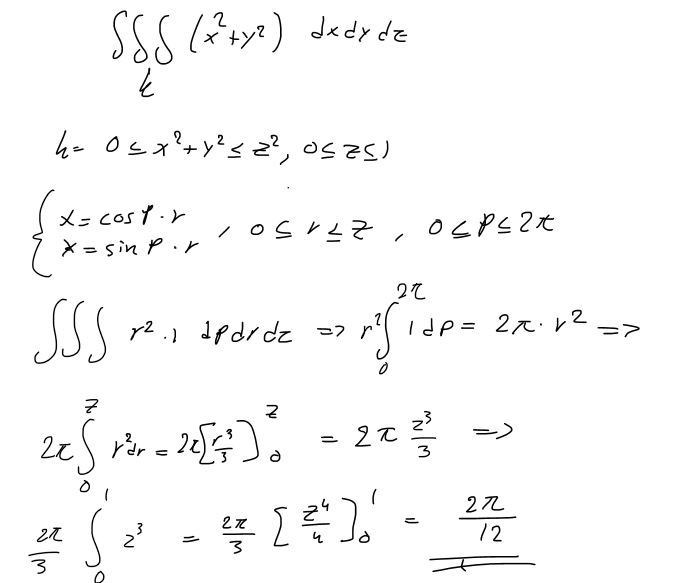 ∫∫∫ (x²+y²) dxdydz
k
k= 0 ≤ x²+y² ≤ z², 0≤z≤1
{ x = cos φ · r
x = sin φ · r , 0 ≤ r ≤ z , 0 ≤ φ ≤ 2π
∫∫∫ r² · 1 dφdrdz => r² ∫₀^2π 1 dφ = 2π · r² =>
2π ∫₀^z r²dr = 2π [r³/3]₀^z = 2π z³/3 =>
2π/3 ∫₀^1 z³ = 2π/3 [z⁴/4]₀^1 = 2π/12